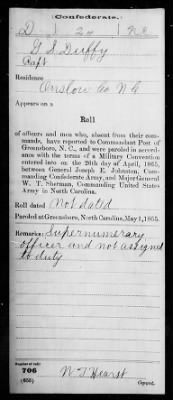 Confederate.
D 24 N.C.
G S Duffy
Capt
Residence
Onslow Co N C
Appears on a
Roll
of officers and men who, absent from their com-
mands, have reported to Commandant Post of
Greensboro, N. C., and were paroled in accord-
ance with the terms of a Military Convention
entered into on the 26th day of April, 1865,
between General Joseph E. Johnston, Com-
manding Confederate Army, and Major General
W. T. Sherman, Commanding United States
Army in North Carolina.
Roll dated Not dated
Paroled at Greensboro, North Carolina, May 1, 1865.
Remarks: Supernumerary
officer and not assigned
to duty
Number of roll:
706
(655)
Copyist.